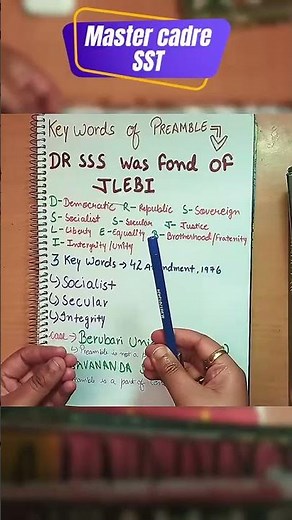 Master cadre
SST
Key Words of PREAMBLE
DR SSS was fond of
JLEBI
D- Democratic R- Republic S- Sovereign
S- Socialist S- Secular J- Justice
L- Liberty E- Equality B- Brotherhood/Fraternity
I- Intergrity/Unity
3 Key Words → 42 Amendment, 1976
Socialist
Secular
Integrity
case → Berubari Uni
Preamble is not a
AVANANDA
is a part of